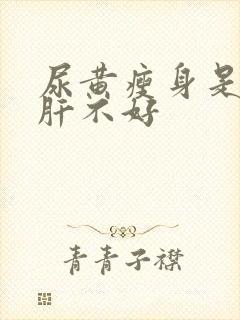 尿黄瘦身是
肝不好
青青子襟